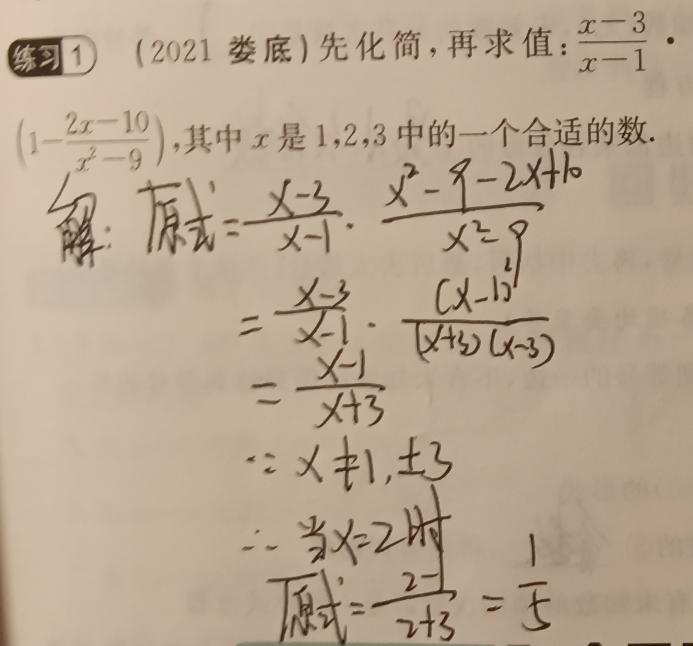 练习1 (2021 娄底)先化简,再求值:\frac{x-3}{x-1}·
(1-\frac{2x-10}{x^2-9}),其中 x 是 1,2,3 中的一个合适的数.
解: 原式=\frac{x-3}{x-1}·\frac{x^2-9-2x+10}{x^2-9}
=\frac{x-3}{x-1}·\frac{(x-1)^2}{(x+3)(x-3)}
=\frac{x-1}{x+3}
∵ x≠1,±3
∴ 当x=2时
原式=\frac{2-1}{2+3}=\frac{1}{5}